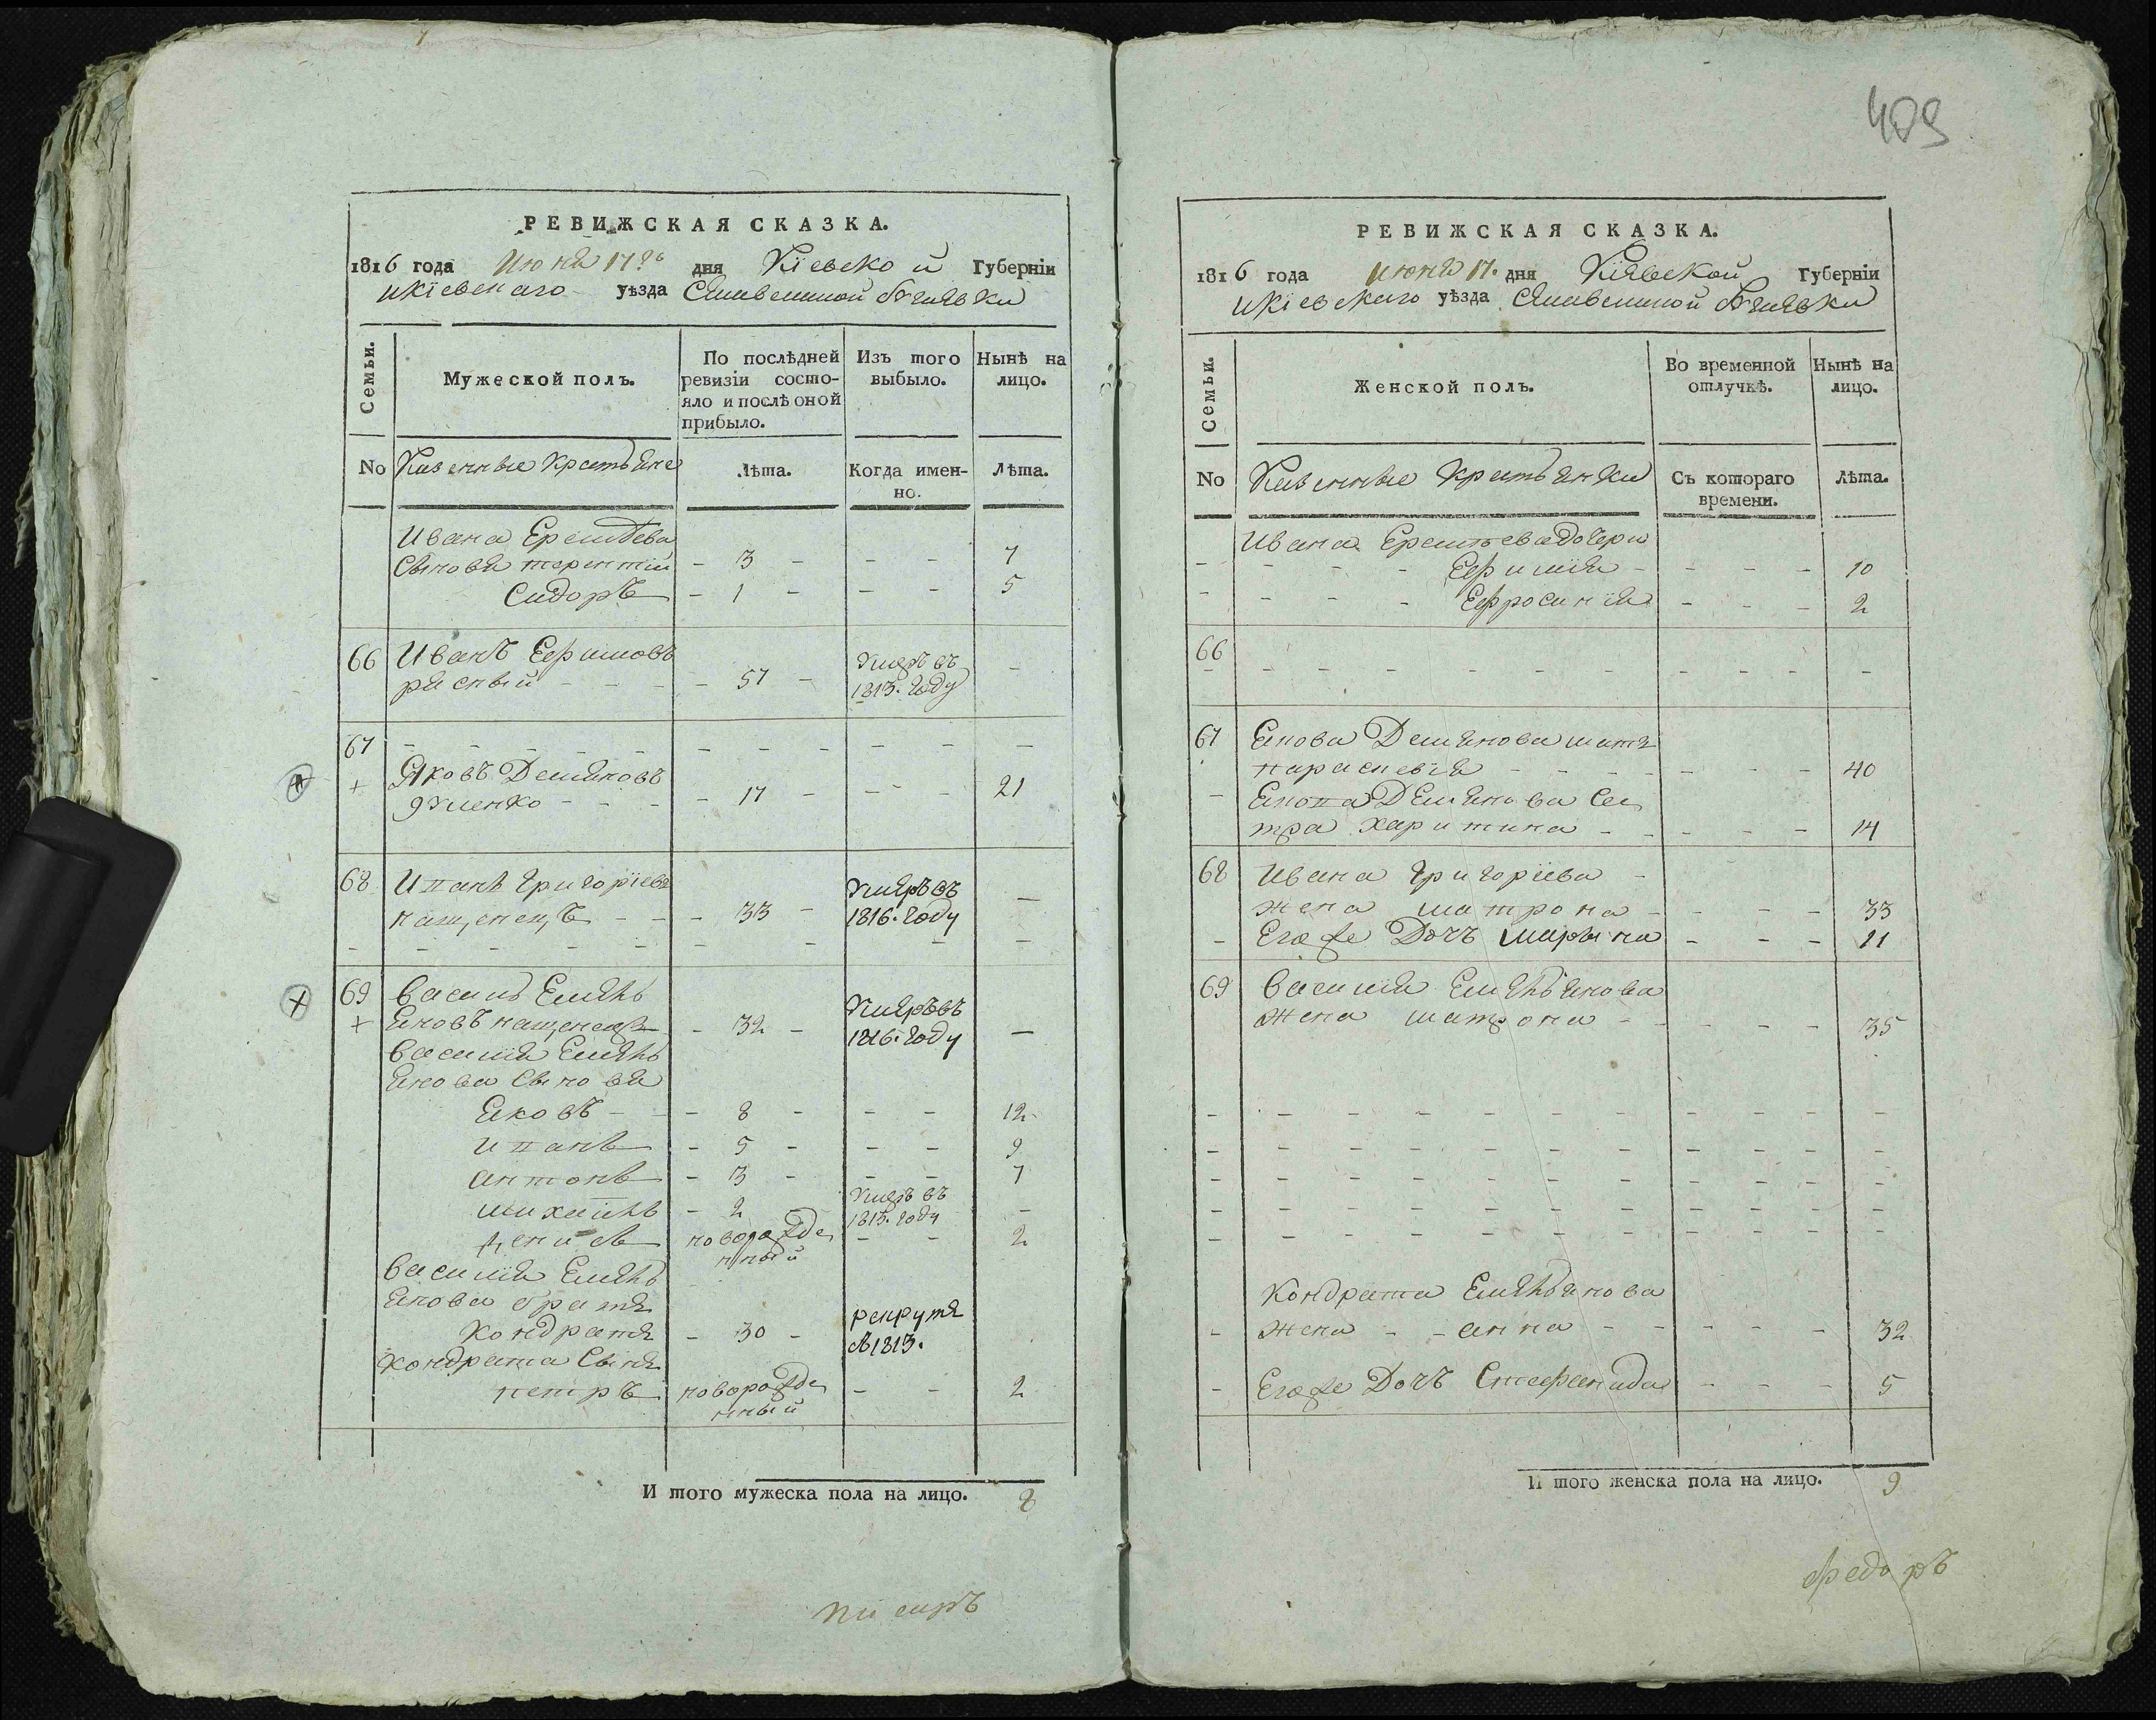 409
РЕВИЖСКАЯ СКАЗКА.
1816 года июня 17го дня Кіевской Губерніи
икіевскаго уѣзда
Семьи.
Мужеской полъ.
По послѣдней ревизіи состо-
яло и послѣ оной
прибыло.
Изъ того
выбыло.
Нынѣ на
лицо.
No
Казенные крестьяне
Лѣта.
Когда имен-
но.
Лѣта.
Ивана
Сыновя терентий - 3 - - - - 7
Сидоръ - 1 - - - - 5
66 Иванъ Ефимовъ умеръ въ
- - - 57 - 1813. году -
67 - - - - - - - - - - - -
+ Яковъ Демяновъ
- - - 17 - - - - 21
68 Иванъ григорієвъ умеръ въ
кащенецъ - - - 33 - 1816. году -
- - - - - - - - - -
69 василь Емель
+ яновъ кащенецъ - 32 - умеръ въ 1816. году -
василия Емель
янова Сыновя
яковъ - - 8 - - - 12
иванъ - 5 - - - 9
антонъ - 3 - - - 7
михаилъ - 2 - умеръ въ 1813. году -
денисъ новорожде - - 2
нный
василия Емель
янова братъ
кондратъ - 30 - рекрутъ в 1813.
кондрата Сынъ
петръ новорожде - - 2
нный
И того мужеска пола на лицо. 8
РЕВИЖСКАЯ СКАЗКА.
1816 года июня 17. дня Кіевской Губерніи
икіевскаго уѣзда
Семьи.
Женской полъ.
Во временной
отлучкѣ.
Нынѣ на
лицо.
No
Казенные крестьянки
Съ котораго
времени.
Лѣта.
Ивана дочери
- - - - Ефимія - - - - 10
- - - - Ефросинія - - - 2
66 - - - - - - - - - - -
67 якова Демянова мать
параскевія - - - - - - - 40
- якова Демянова сес
тра харитина - - - - - 14
68 Ивана григоріева -
жена матрона - - - - 33
- Егоже Дочъ марына - - - 11
69 василия Емельянова
жена матрона - - - - - 35
Кондрата Емельянова
- жена - - анна - - - - - 32
- Егоже Дочъ Стефанида - - - 5
И того женска пола на лицо. 9
федоръ